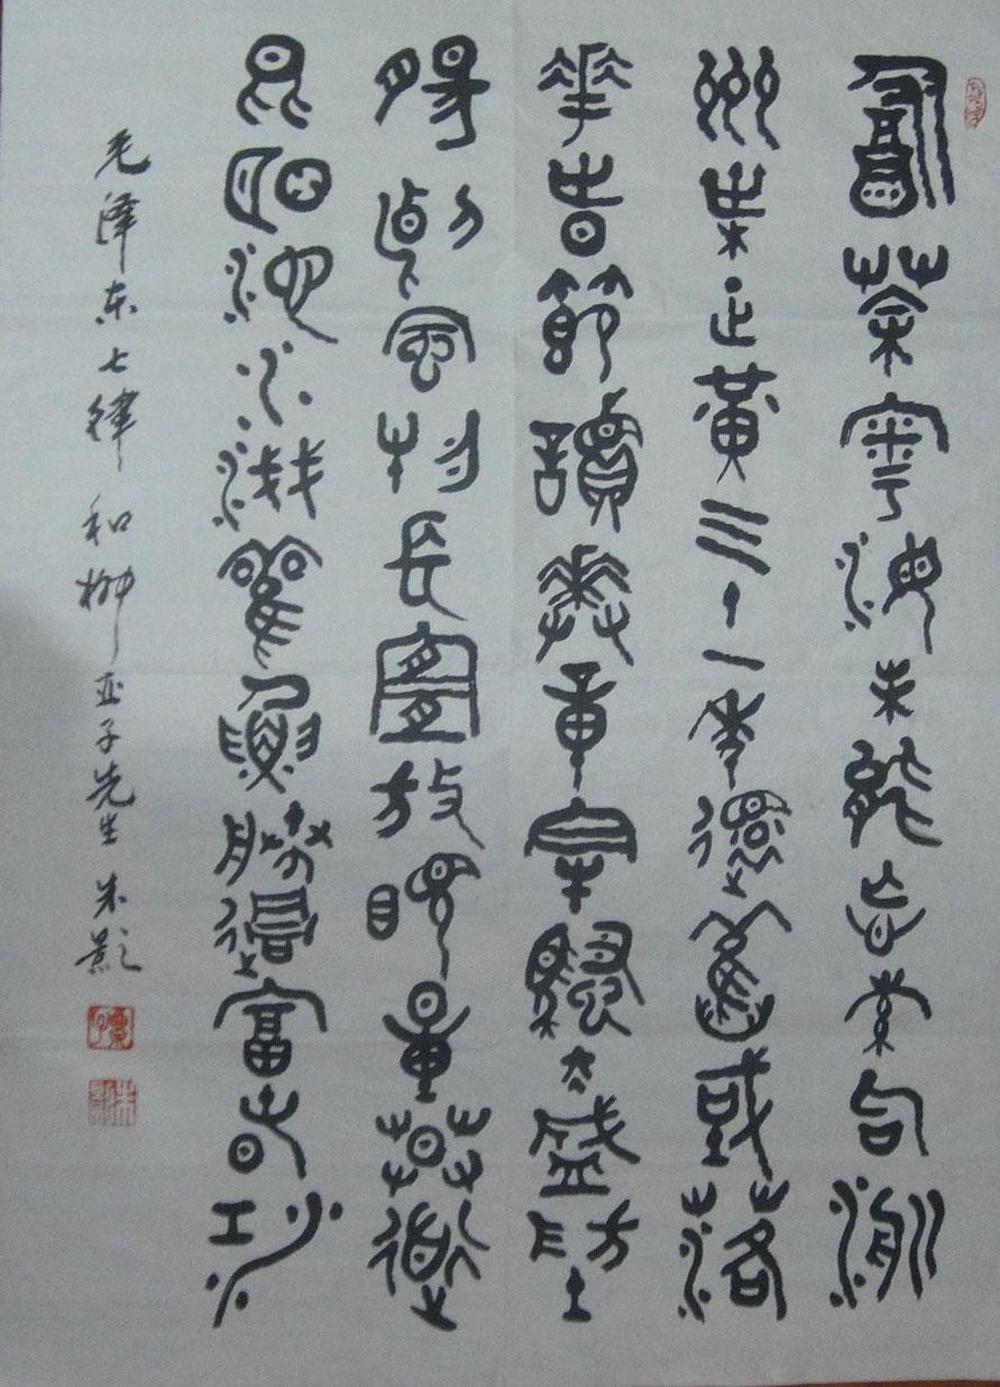 飲茶粵海未能忘索句渝
州葉正黃三十一年還舊國落
華時節讀華章牢騷太盛防
腸斷風物長宜放眼量莫道
昆明池水淺觀魚勝過富春江
毛泽东七律和柳亚子先生 朱影